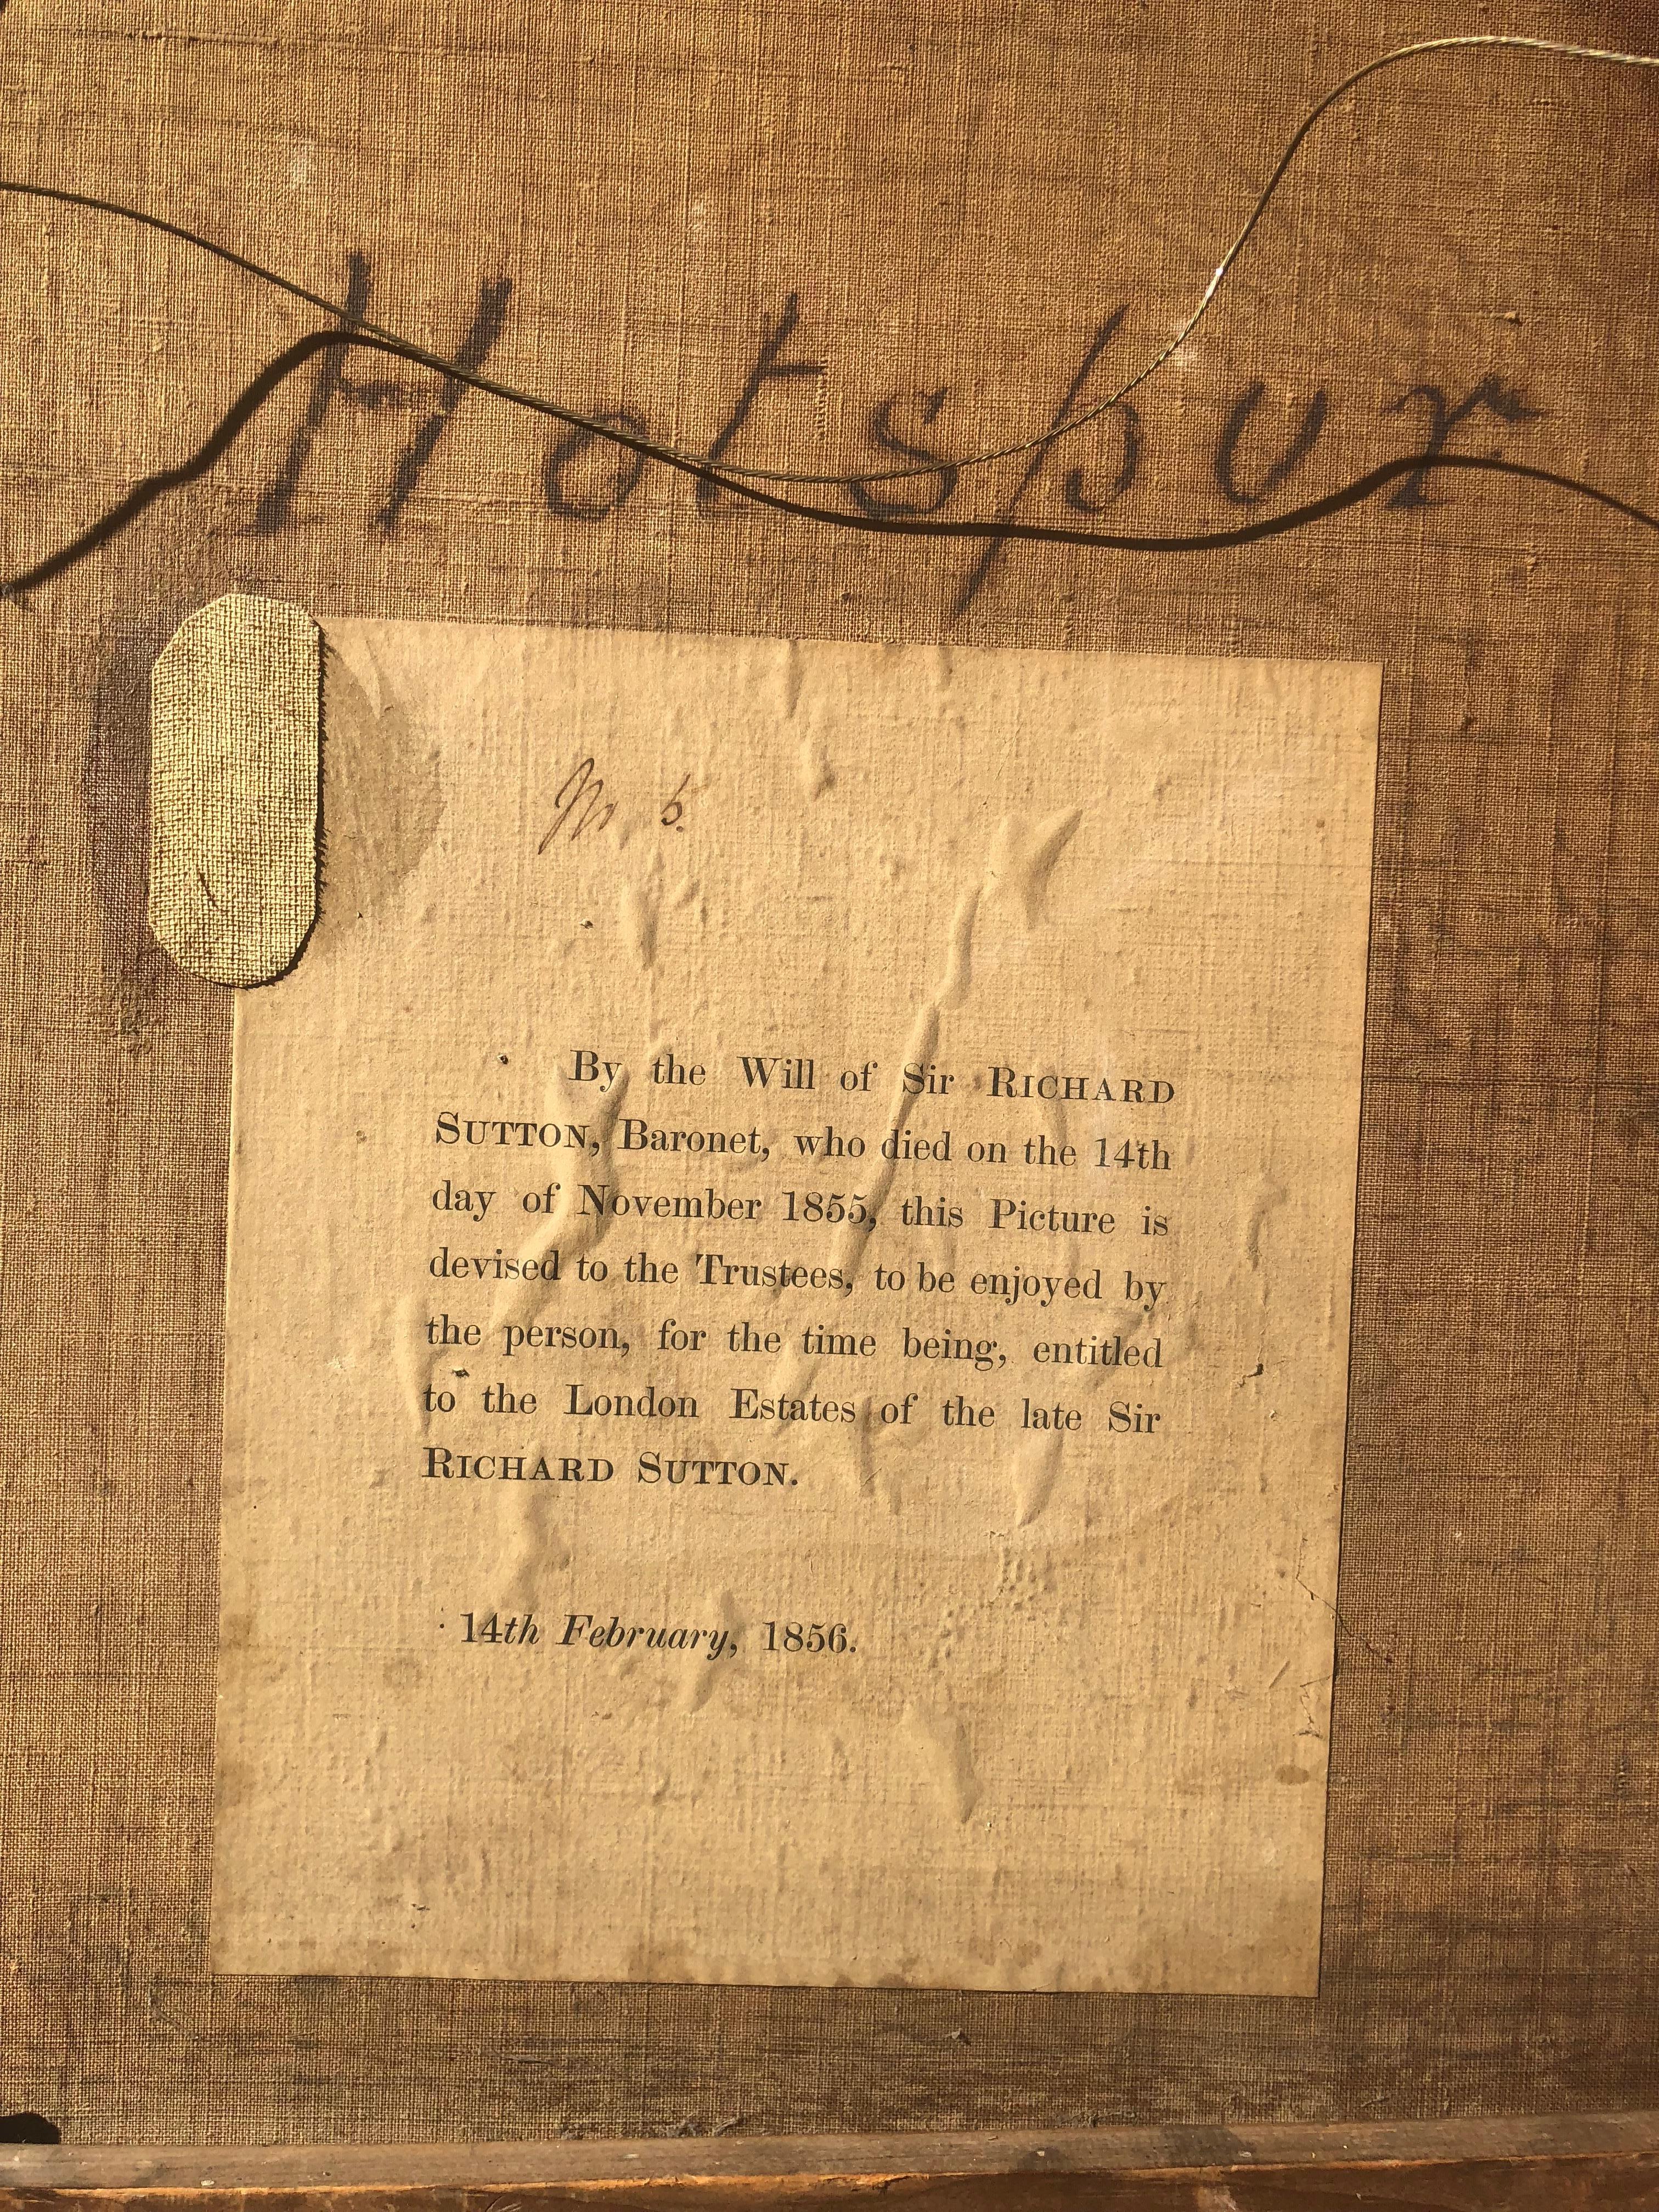 Hotspur
By the Will of Sir RICHARD
SUTTON, Baronet, who died on the 14th
day of November 1855, this Picture is
devised to the Trustees, to be enjoyed by
the person, for the time being, entitled
to the London Estates of the late Sir
RICHARD SUTTON.
14th February, 1856.